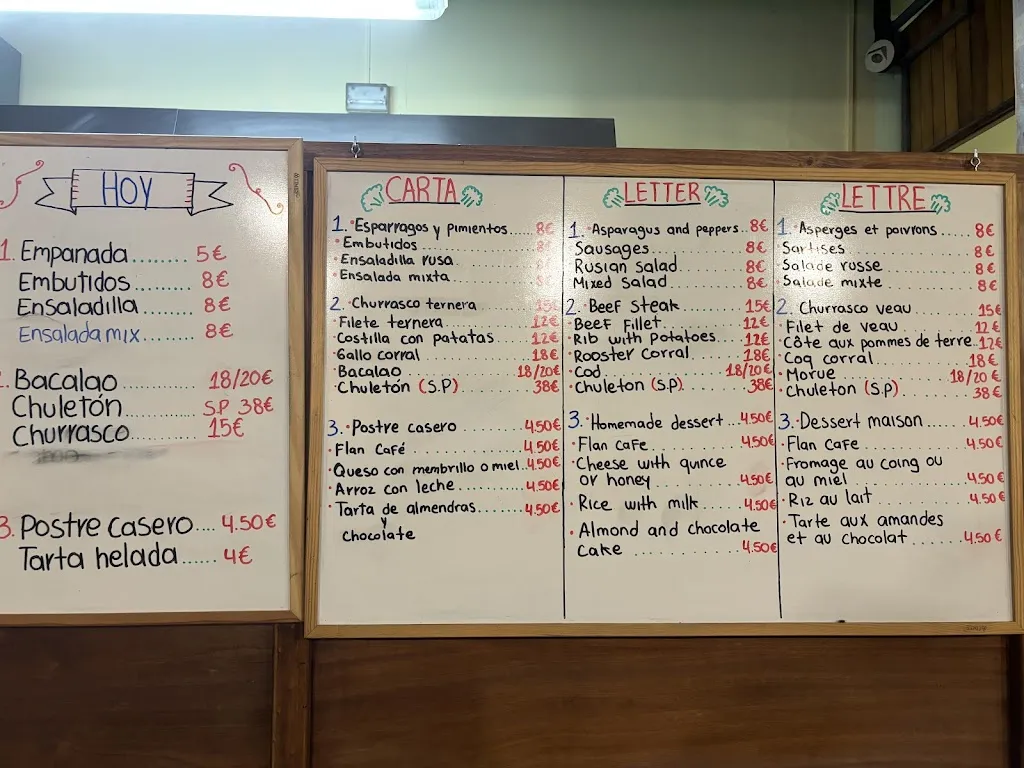 HOY
1. Empanada........ 5€
Embutidos.......... 8€
Ensaladilla......... 8€
Ensalada mix....... 8€
Bacalao.............. 18/20€
Chuletón............ S.P 38€
Churrasco.......... 15€
3. Postre casero.... 4.50€
Tarta helada...... 4€
CARTA
1. Esparragos y pimientos..... 8€
Embutidos................. 8€
Ensaladilla rusa.......... 8€
Ensalada mixta............ 8€
2. Churrasco ternera.......... 15€
Filete ternera............ 12€
Costilla con patatas...... 12€
Gallo corral.............. 18€
Bacalao................... 18/20€
Chuletón (S.P)............ 38€
3. Postre casero.............. 4.50€
Flan Café................. 4.50€
Queso con membrillo o miel. 4.50€
Arroz con leche........... 4.50€
Tarta de almendras........ 4.50€
y
chocolate
LETTER
1. Asparagus and peppers.. 8€
Sausages............... 8€
Rusian salad........... 8€
Mixed salad............ 8€
2. Beef steak............. 15€
Beef Fillet............ 12€
Rib with potatoes...... 12€
Rooster Corral......... 18€
Cod.................... 18/20€
Chuleton (S.P)......... 38€
3. Homemade dessert... 4.50€
Flan cafe.............. 4.50€
Cheese with qunce
or honey............... 4.50€
Rice with milk......... 4.50€
Almond and chocolate
cake .................. 4.50€
LETTRE
1. Asperges et poivrons..... 8€
8€
Salade russe............ 8€
Salade mixte............ 8€
2. Churrasco veau.......... 15€
Filet de veau........... 12€
Côte aux pommes de terre.. 12€
Coq corral.............. 18€
Morue................... 18/20€
Chuleton (S.P).......... 38€
3. Dessert maison.......... 4.50€
Flan cafe............... 4.50€
Fromage au coing ou
au miel................. 4.50€
Riz au lait............. 4.50€
Tarte aux amandes
et au chocolat.......... 4.50€